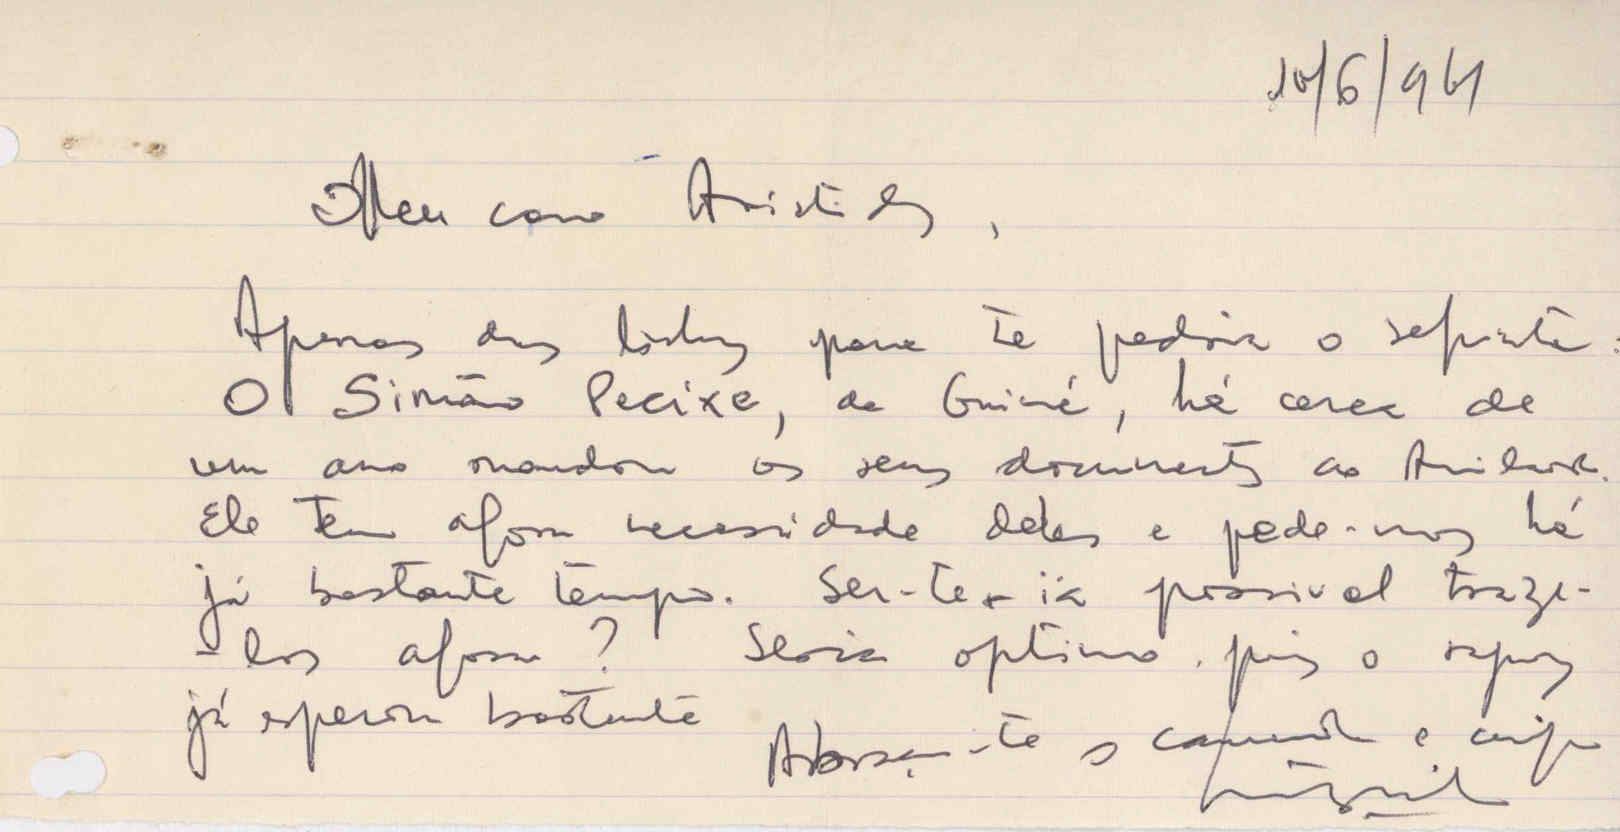 10/6/961
Meu caro Aristides,
Apenas duas linhas para te pedir o seguinte:
O Simão Pecixe, da Guiné, há cerca de
um ano mandou os seus documents ao Amilcar.
Ele tem agora necessidade deles e pede-nos há
já bastante tempo. Ser-te-ia possivel traze-
-los agora? Seria optimo, pois o rapaz
já esperou bastante
Abraça-te o camarada e amigo